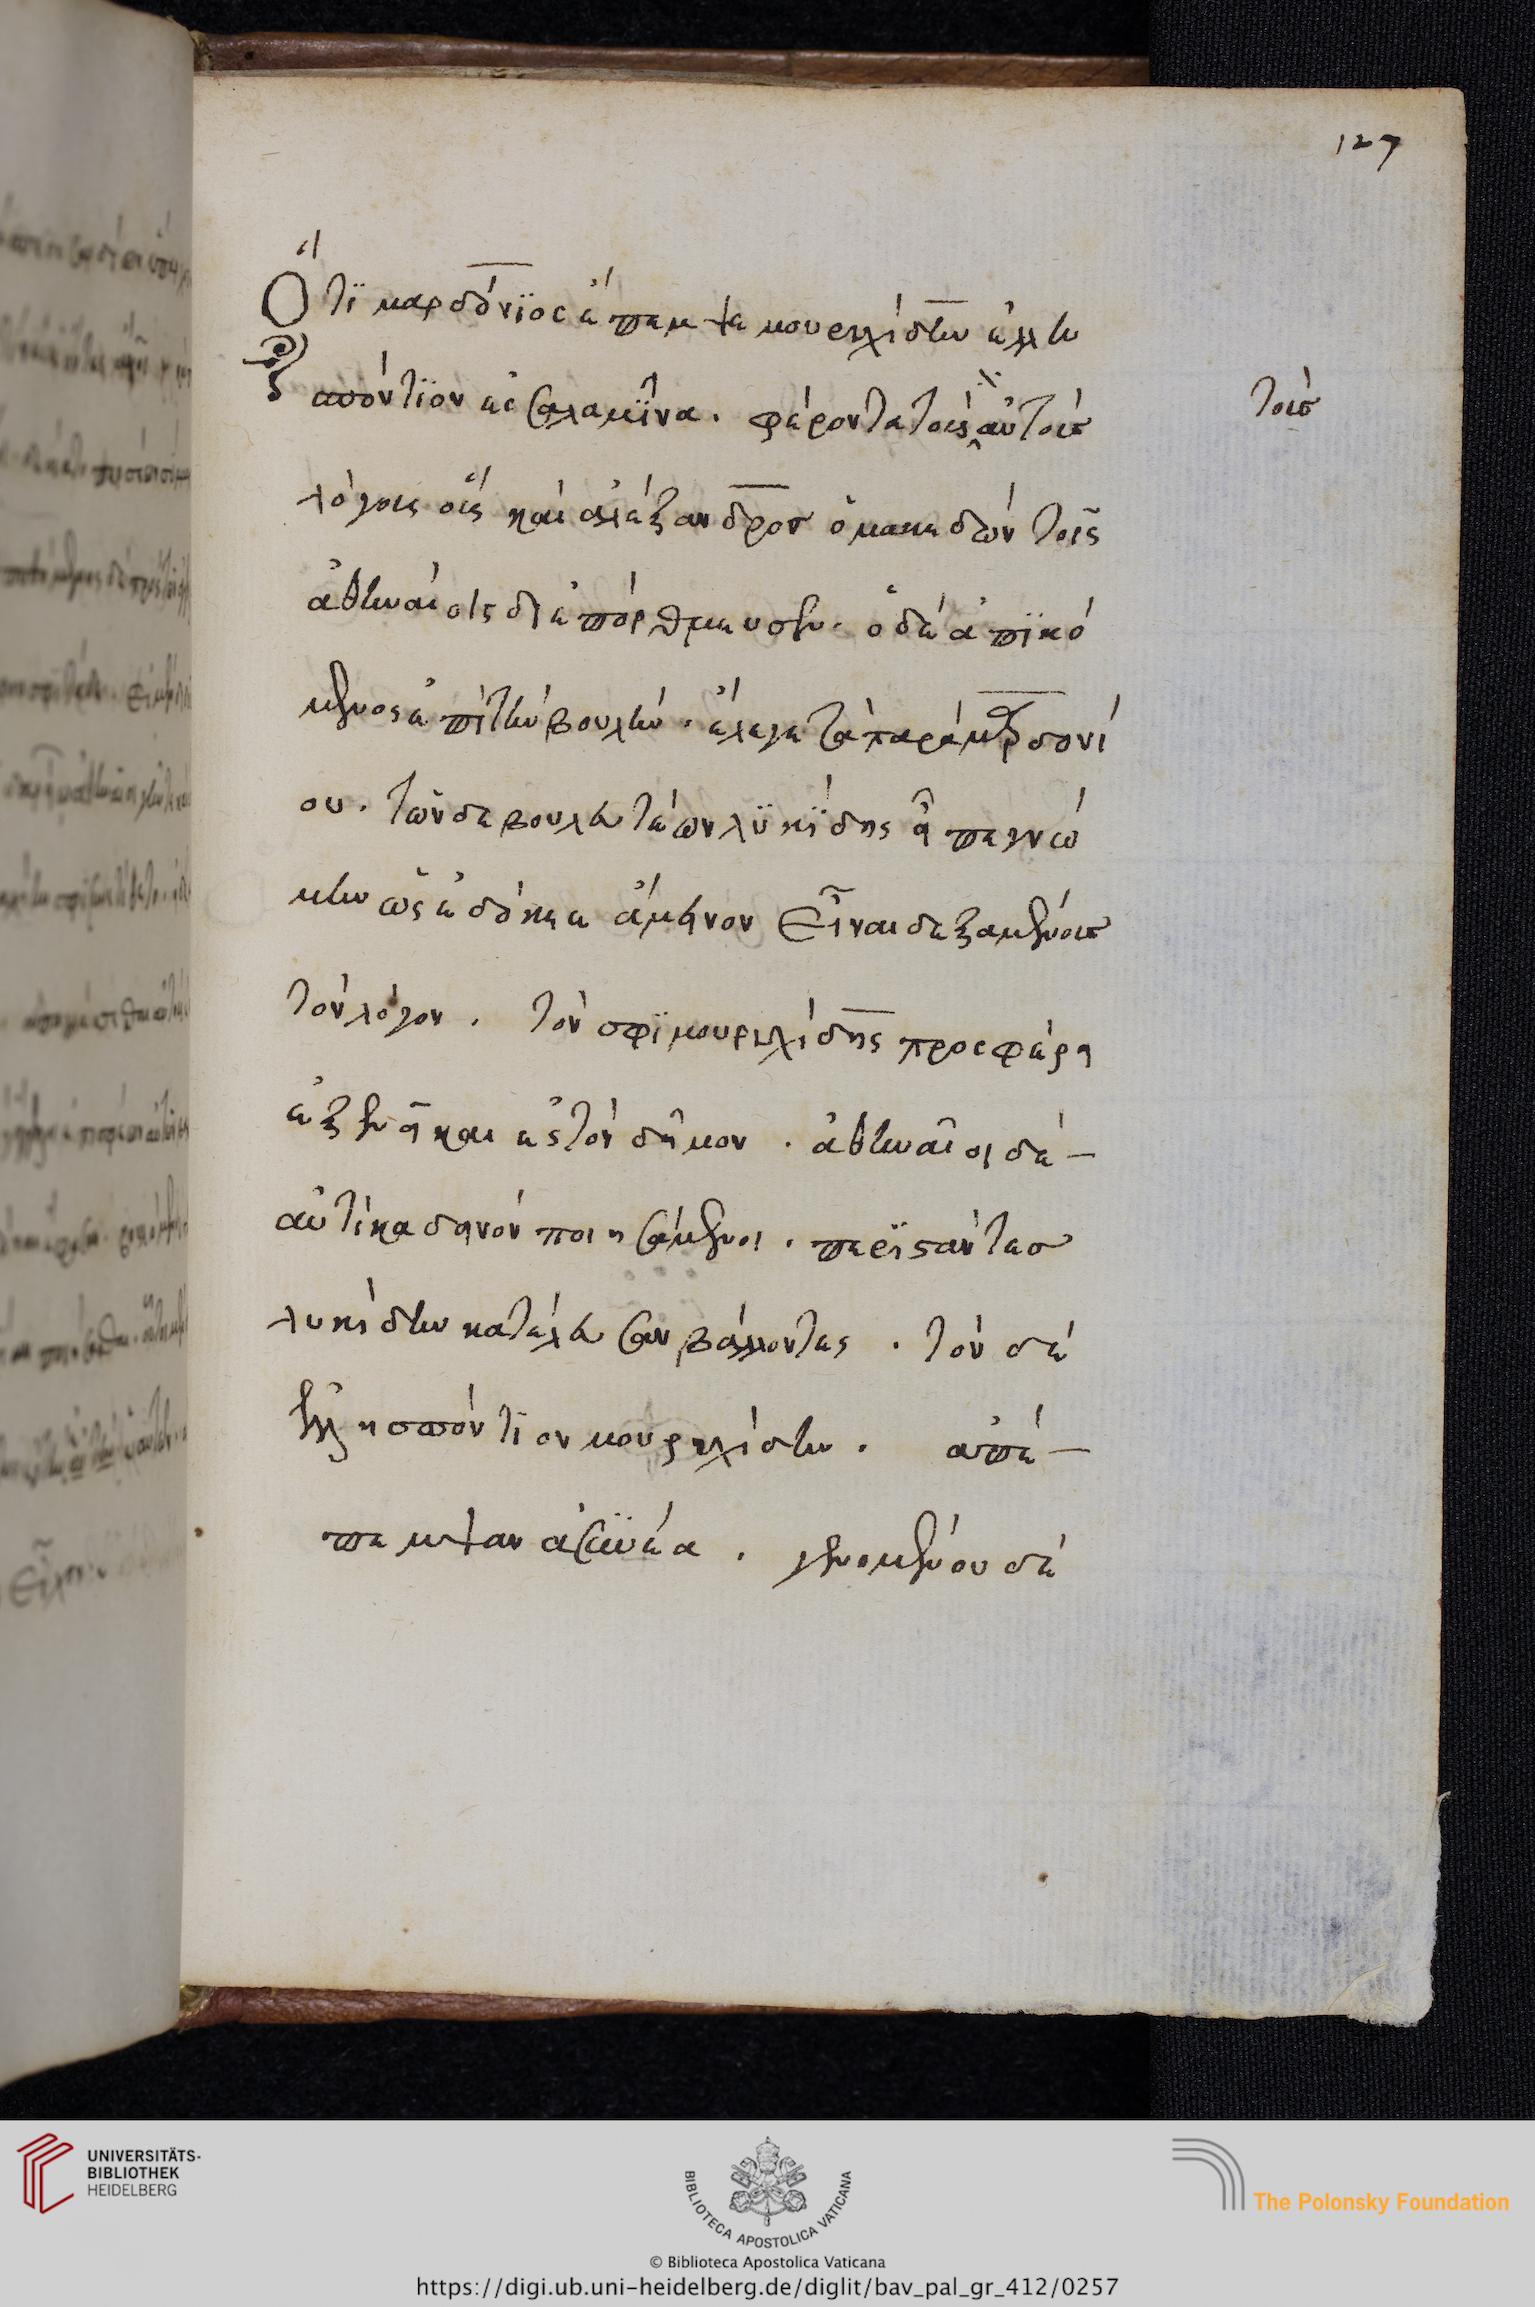 127
Ὅτϊ μαρδόνϊος ἔπεμψε μουρυχίδην ἑλλη
σπόντϊον ἐς σαλαμῖνα. φέροντα τοὺς αὐτοὺς
τοὺς
λόγους οὓς καὶ ἀλέξανδρος ὁ μακεδὼν τοῖς
ἀθηναίοις διεπόρθμευσεν. ὁ δὲ ἀπϊκό
μενος ἐπὶ τὴν βουλὴν. ἔλεγε τὰ παρὰ μαρδονί
ου. τῶν δὲ βουλευτέων λϋκϊδης εἶπε γνώ
μην ὡς ἐδόκεε ἄμεινον εἶναι δεξαμένους
τὸν λόγον. τόν σφϊ μουρυχίδης προσφέρει
ἐξενεῖκαι ἐς τὸν δῆμον. ἀθηναῖοι δὲ
αὐτίκα δεινὸν ποιησάμενοι. περϊστάντες
λυκίδην κατέλευσαν βάλλοντες. τὸν δὲ
ἑλλησπόντιον μουρυχίδην. ἀπέ
πεμψαν ἀσϊνέα. γενομένου δὲ
UNIVERSITÄTS-
BIBLIOTHEK
HEIDELBERG
BIBLIOTECA APOSTOLICA VATICANA
The Polonsky Foundation
© Biblioteca Apostolica Vaticana
https://digi.ub.uni-heidelberg.de/diglit/bav_pal_gr_412/0257